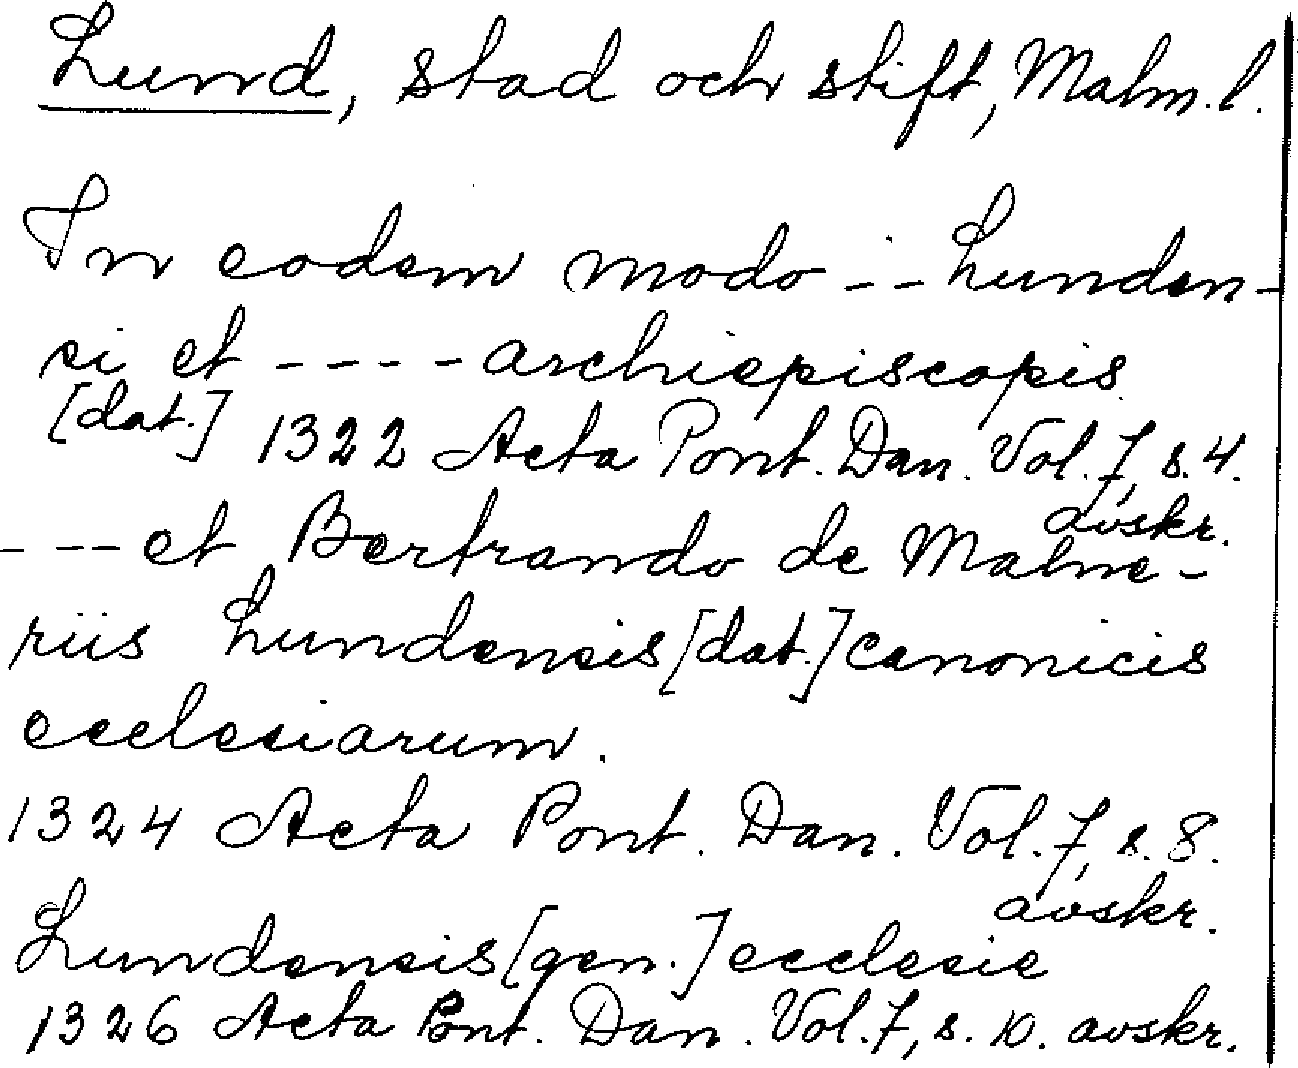 Lund, stad och stift, Malm.l.
In eodem modo -- Lunden-
si et ---- archiepiscopis
[dat.] 1322 Acta Pont. Dan. Vol. 7, s. 4.
avskr.
--- et Bertrando de Malne-
riis Lundensis [dat.] canonicis
ecclesiarum.
1324 Acta Pont. Dan. Vol. 7, s. 8.
avskr.
Lundensis [gen.] ecclesie
1326 Acta Pont. Dan. Vol. 7, s. 10. avskr.